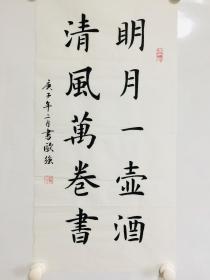 明月一壺酒
清風萬卷書
庚子年二月書歐強